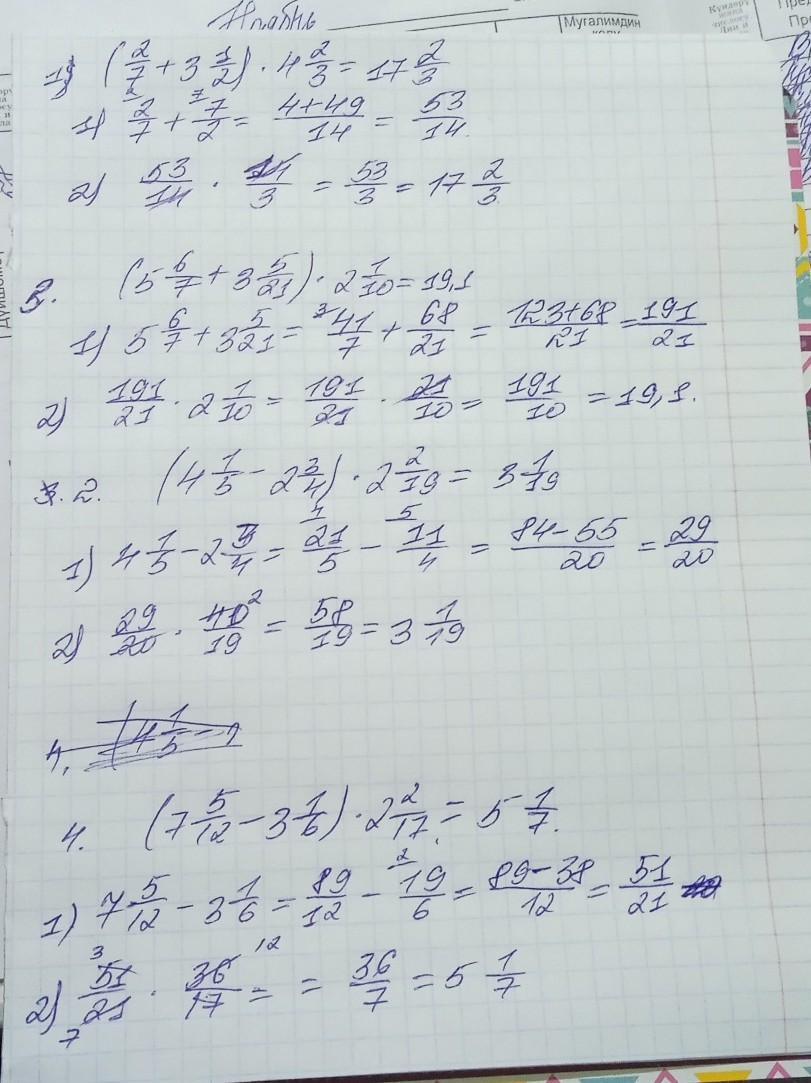 Мугалимдин
1) (2/7 + 3 1/2) · 4 2/3 = 17 2/3
1) 2/7 + 7/2 = (4+49)/14 = 53/14.
2) 53/14 · 14/3 = 53/3 = 17 2/3.
3. (5 6/7 + 3 5/21) · 2 1/10 = 19,1
1) 5 6/7 + 3 5/21 = 41/7 + 68/21 = (123+68)/21 = 191/21
2) 191/21 · 2 1/10 = 191/21 · 21/10 = 191/10 = 19,1.
2. (4 1/5 - 2 3/4) · 2 2/19 = 3 1/19
1) 4 1/5 - 2 3/4 = 21/5 - 11/4 = (84-55)/20 = 29/20
2) 29/20 · 40/19 = 58/19 = 3 1/19
4. (7 5/12 - 3 1/6) · 2 2/17 = 5 1/7.
1) 7 5/12 - 3 1/6 = 89/12 - 19/6 = (89-38)/12 = 51/21
2) 51/21 · 36/17 = = 36/7 = 5 1/7